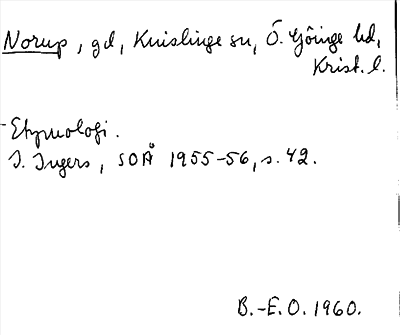 Norup, gd, Knislinge sn, Ö. Göinge hd,
Krist. l.
- Etymologi.
I. Ingers, SOÅ 1955-56, s. 42.
B.-E.O. 1960.